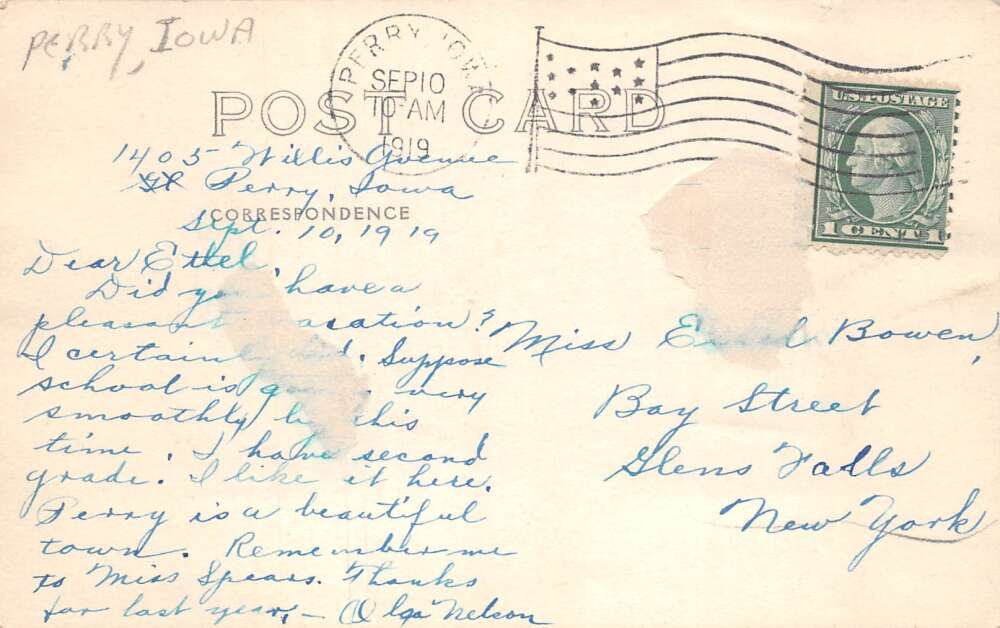 PERRY, IOWA
PERRY, IOWA
SEP 10
10-AM
1919
U.S. POSTAGE
1 CENT 1
POST CARD
1405 Willis Avenue
Perry, Iowa
CORRESPONDENCE
Sept. 10, 1919
Dear Ethel,
Did you have a
pleasant vacation?
I certainly did. Suppose
school is going very
smoothly by this
time. I have second
grade. I like it here.
Perry is a beautiful
town. Remember me
to Miss Spears. Thanks
for last year, – Olga Nelson
Miss Ethel Bowen,
Bay Street
Glens Falls
New York